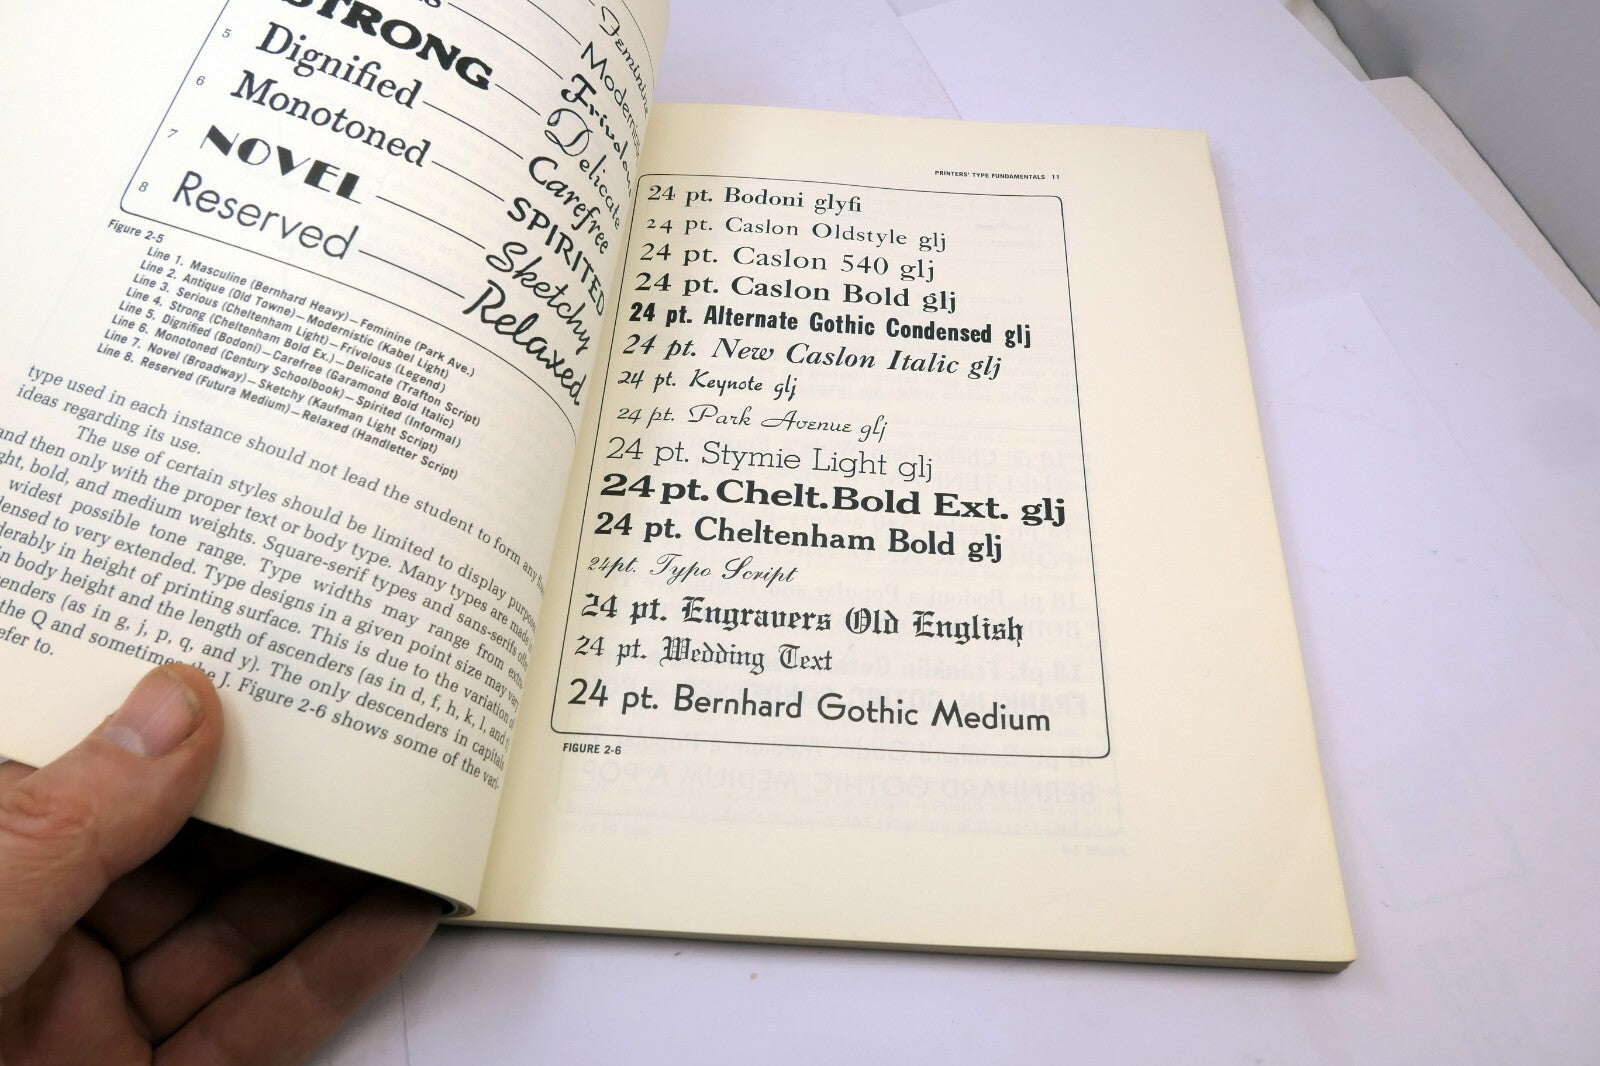 STRONG
5 Dignified
6 Monotoned
7 NOVEL
8 Reserved
Feminine
Modernistic
Frivolous
Delicate
Carefree
SPIRITED
Sketchy
Relaxed
Figure 2-5
Line 1. Masculine (Bernhard Heavy)—Feminine (Park Ave.)
Line 2. Antique (Old Towne)—Modernistic (Kabel Light)
Line 3. Serious (Cheltenham Light)—Frivolous (Legend)
Line 4. Strong (Cheltenham Bold Ex.)—Delicate (Trafton Script)
Line 5. Dignified (Bodoni)—Carefree (Garamond Bold Italic)
Line 6. Monotoned (Century Schoolbook)—Spirited (Informal)
Line 7. Novel (Broadway)—Sketchy (Kaufman Light Script)
Line 8. Reserved (Futura Medium)—Relaxed (Handletter Script)
type used in each instance should not lead the student to form any
ideas regarding its use.
The use of certain styles should be limited to display purposes
and then only with the proper text or body type. Many types are made in
bold, and medium weights. Square-serif types and sans-serifs
widest possible tone range. Type widths may range from
to very extended. Type designs in a given point size may vary
in height of printing surface. This is due to the variation of
body height and the length of ascenders (as in d, f, h, k, l, and t)
(as in g, j, p, q, and y). The only descenders in capitals
the Q and sometimes the J. Figure 2-6 shows some of the vari-
to.
PRINTERS' TYPE FUNDAMENTALS 11
24 pt. Bodoni glyfi
24 pt. Caslon Oldstyle glj
24 pt. Caslon 540 glj
24 pt. Caslon Bold glj
24 pt. Alternate Gothic Condensed glj
24 pt. New Caslon Italic glj
24 pt. Keynote glj
24 pt. Park Avenue glj
24 pt. Stymie Light glj
24 pt. Chelt. Bold Ext. glj
24 pt. Cheltenham Bold glj
24pt. Typo Script
24 pt. Engravers Old English
24 pt. Wedding Text
24 pt. Bernhard Gothic Medium
FIGURE 2-6